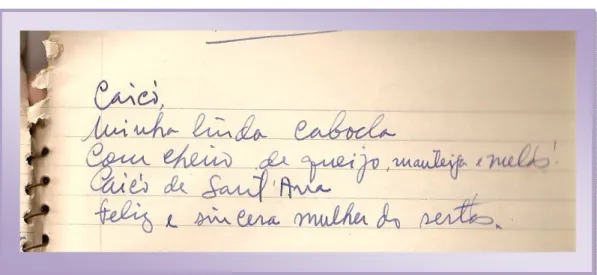 Caicó,
Minha linda cabocla
Com cheiro de queijo, manteiga e melão!
Caicó de Sant'Ana
feliz e sincera mulher do sertão.